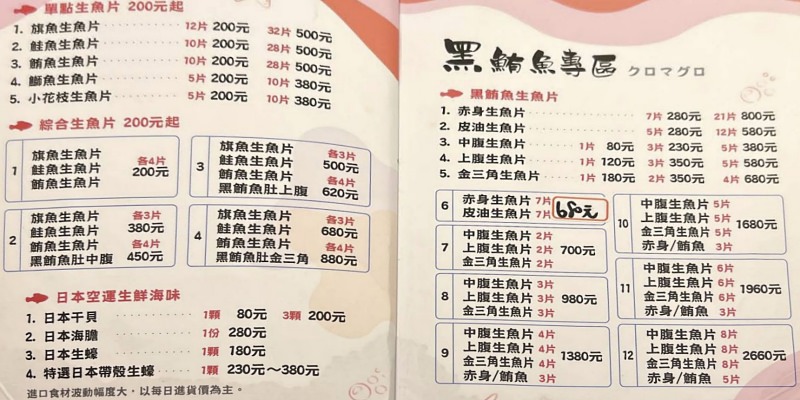 單點生魚片 200元起
1. 旗魚生魚片 12片 200元 32片 500元
2. 鮭魚生魚片 10片 200元 28片 500元
3. 鮪魚生魚片 10片 200元 28片 500元
4. 鰤魚生魚片 5片 200元 10片 380元
5. 小花枝生魚片 5片 200元 10片 380元
綜合生魚片 200元起
1
旗魚生魚片
鮭魚生魚片
鮪魚生魚片
各4片
200元
3
旗魚生魚片
鮭魚生魚片
鮪魚生魚片
黑鮪魚肚上腹
各3片
500元
各4片
620元
2
旗魚生魚片
鮭魚生魚片
鮪魚生魚片
黑鮪魚肚中腹
各3片
380元
各4片
450元
4
旗魚生魚片
鮭魚生魚片
鮪魚生魚片
黑鮪魚肚金三角
各3片
680元
各4片
880元
日本空運生鮮海味
1. 日本干貝 1顆 80元 3顆 200元
2. 日本海膽 1份 280元
3. 日本生蠔 1顆 180元
4. 特選日本帶殼生蠔 1顆 230元～380元
進口食材波動幅度大，以每日進貨價為主。
黑鮪魚專區 クロマグロ
黑鮪魚生魚片
1. 赤身生魚片 7片 280元 21片 800元
2. 皮油生魚片 5片 280元 12片 580元
3. 中腹生魚片 1片 80元 3片 230元 5片 380元
4. 上腹生魚片 1片 120元 3片 350元 5片 580元
5. 金三角生魚片 1片 180元 2片 350元 4片 680元
6
赤身生魚片 7片
皮油生魚片 7片
680元
7
中腹生魚片 2片
上腹生魚片 2片
金三角生魚片 2片
700元
8
中腹生魚片 3片
上腹生魚片 3片
金三角生魚片 3片
980元
9
中腹生魚片 4片
上腹生魚片 4片
金三角生魚片 4片
赤身/鮪魚 3片
1380元
10
中腹生魚片 5片
上腹生魚片 5片
金三角生魚片 5片
赤身/鮪魚 3片
1680元
11
中腹生魚片 6片
上腹生魚片 6片
金三角生魚片 6片
赤身/鮪魚 3片
1960元
12
中腹生魚片 8片
上腹生魚片 8片
金三角生魚片 8片
赤身/鮪魚 5片
2660元